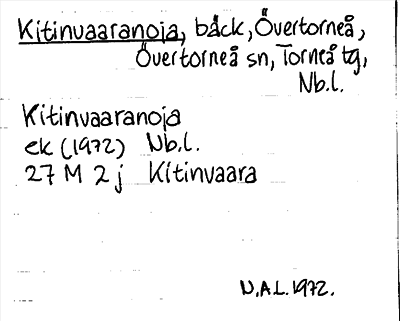 Kitinvaaranoja, bäck, Övertorneå,
Övertorneå sn, Torneå tg,
Nb.l.
Kitinvaaranoja
ek (1972) Nb.l.
27 M 2 j Kitinvaara
N.A.L. 1972.